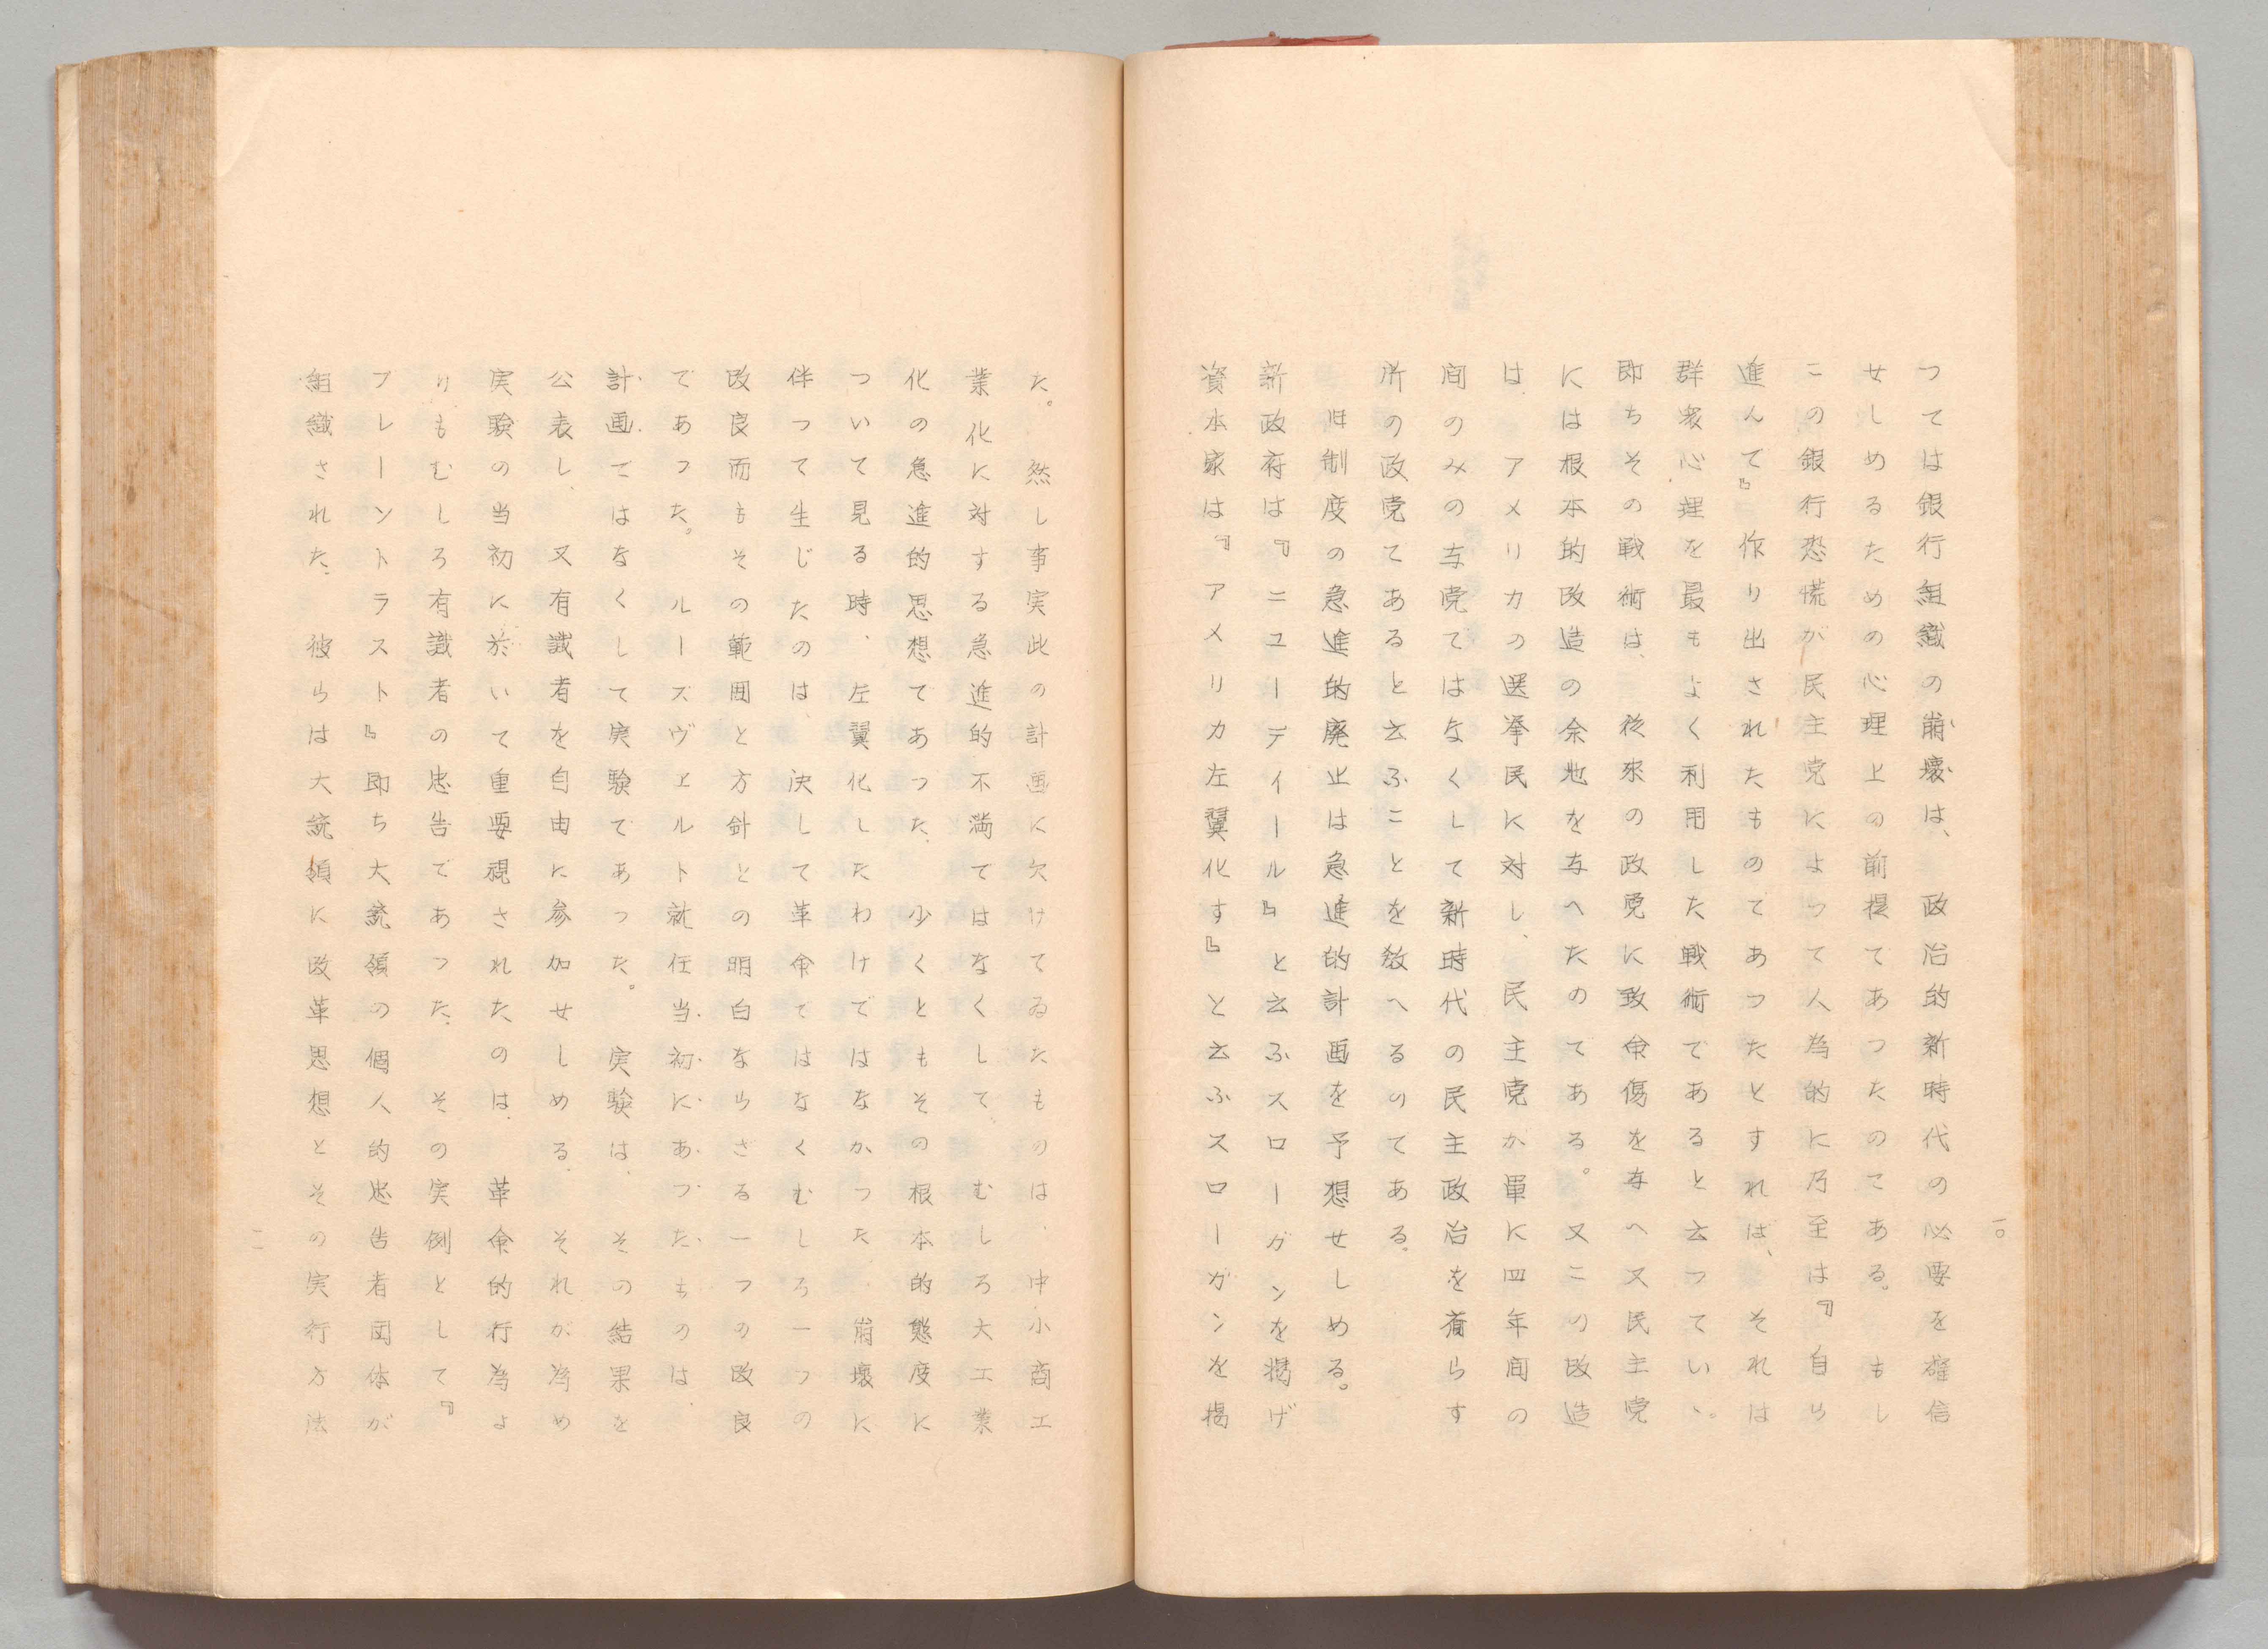 一〇
つては銀行組織の崩壊は、政治的新時代の必要を確信
せしめるための心理上の前提てあつたのてある。もし
この銀行恐慌が民主党によつて人為的に乃至は『自り
進んて』作り出されたものてあつたとすれは、それは
群衆心理を最もよく利用した戦術であると云つていゝ。
即ちその戦術は、従来の政党に致命傷を与へ又民主党
には根本的改造の余地を与へたのてある。又この改造
は、アメリカの選挙民に対し、民主党か単に四年間の
間のみの与党てはなくして新時代の民主政治を齎らす
所の政党てあると云ふことを教へるのてある。
旧制度の急進的廃止は急進的計画を予想せしめる。
新政府は『ニユーデイール』と云ふスローガンを掲げ
資本家は『アメリカ左翼化す』と云ふスローガンを掲
た。然し事実此の計画に欠けてゐたものは、中小商工
業化に対する急進的不満てはなくして、むしろ大工業
化の急進的思想てあつた、少くともその根本的態度に
ついて見る時、左翼化したわけではなかつた、崩壊に
伴つて生じたのは、決して革命てはなくむしろ一つの
改良而もその範囲と方針との明白ならざる一つの改良
であつた。ルーズヴェルト就任当初にあつたものは、
計画ではなくして実験てあつた。実験は、その結果を
公表し、又有識者を自由に参加せしめる、それが為め
実験の当初に於いて重要視されたのは、革命的行為よ
りもむしろ有識者の忠告であつた、その実例として『
ブレーントラスト』即ち大統領の個人的忠告者団体が
組織された、彼らは大統領に改革思想とその実行方法
一一